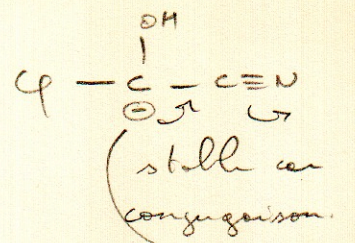 OH
φ — C — C≡N
⊖
(stable car
conjugaison.